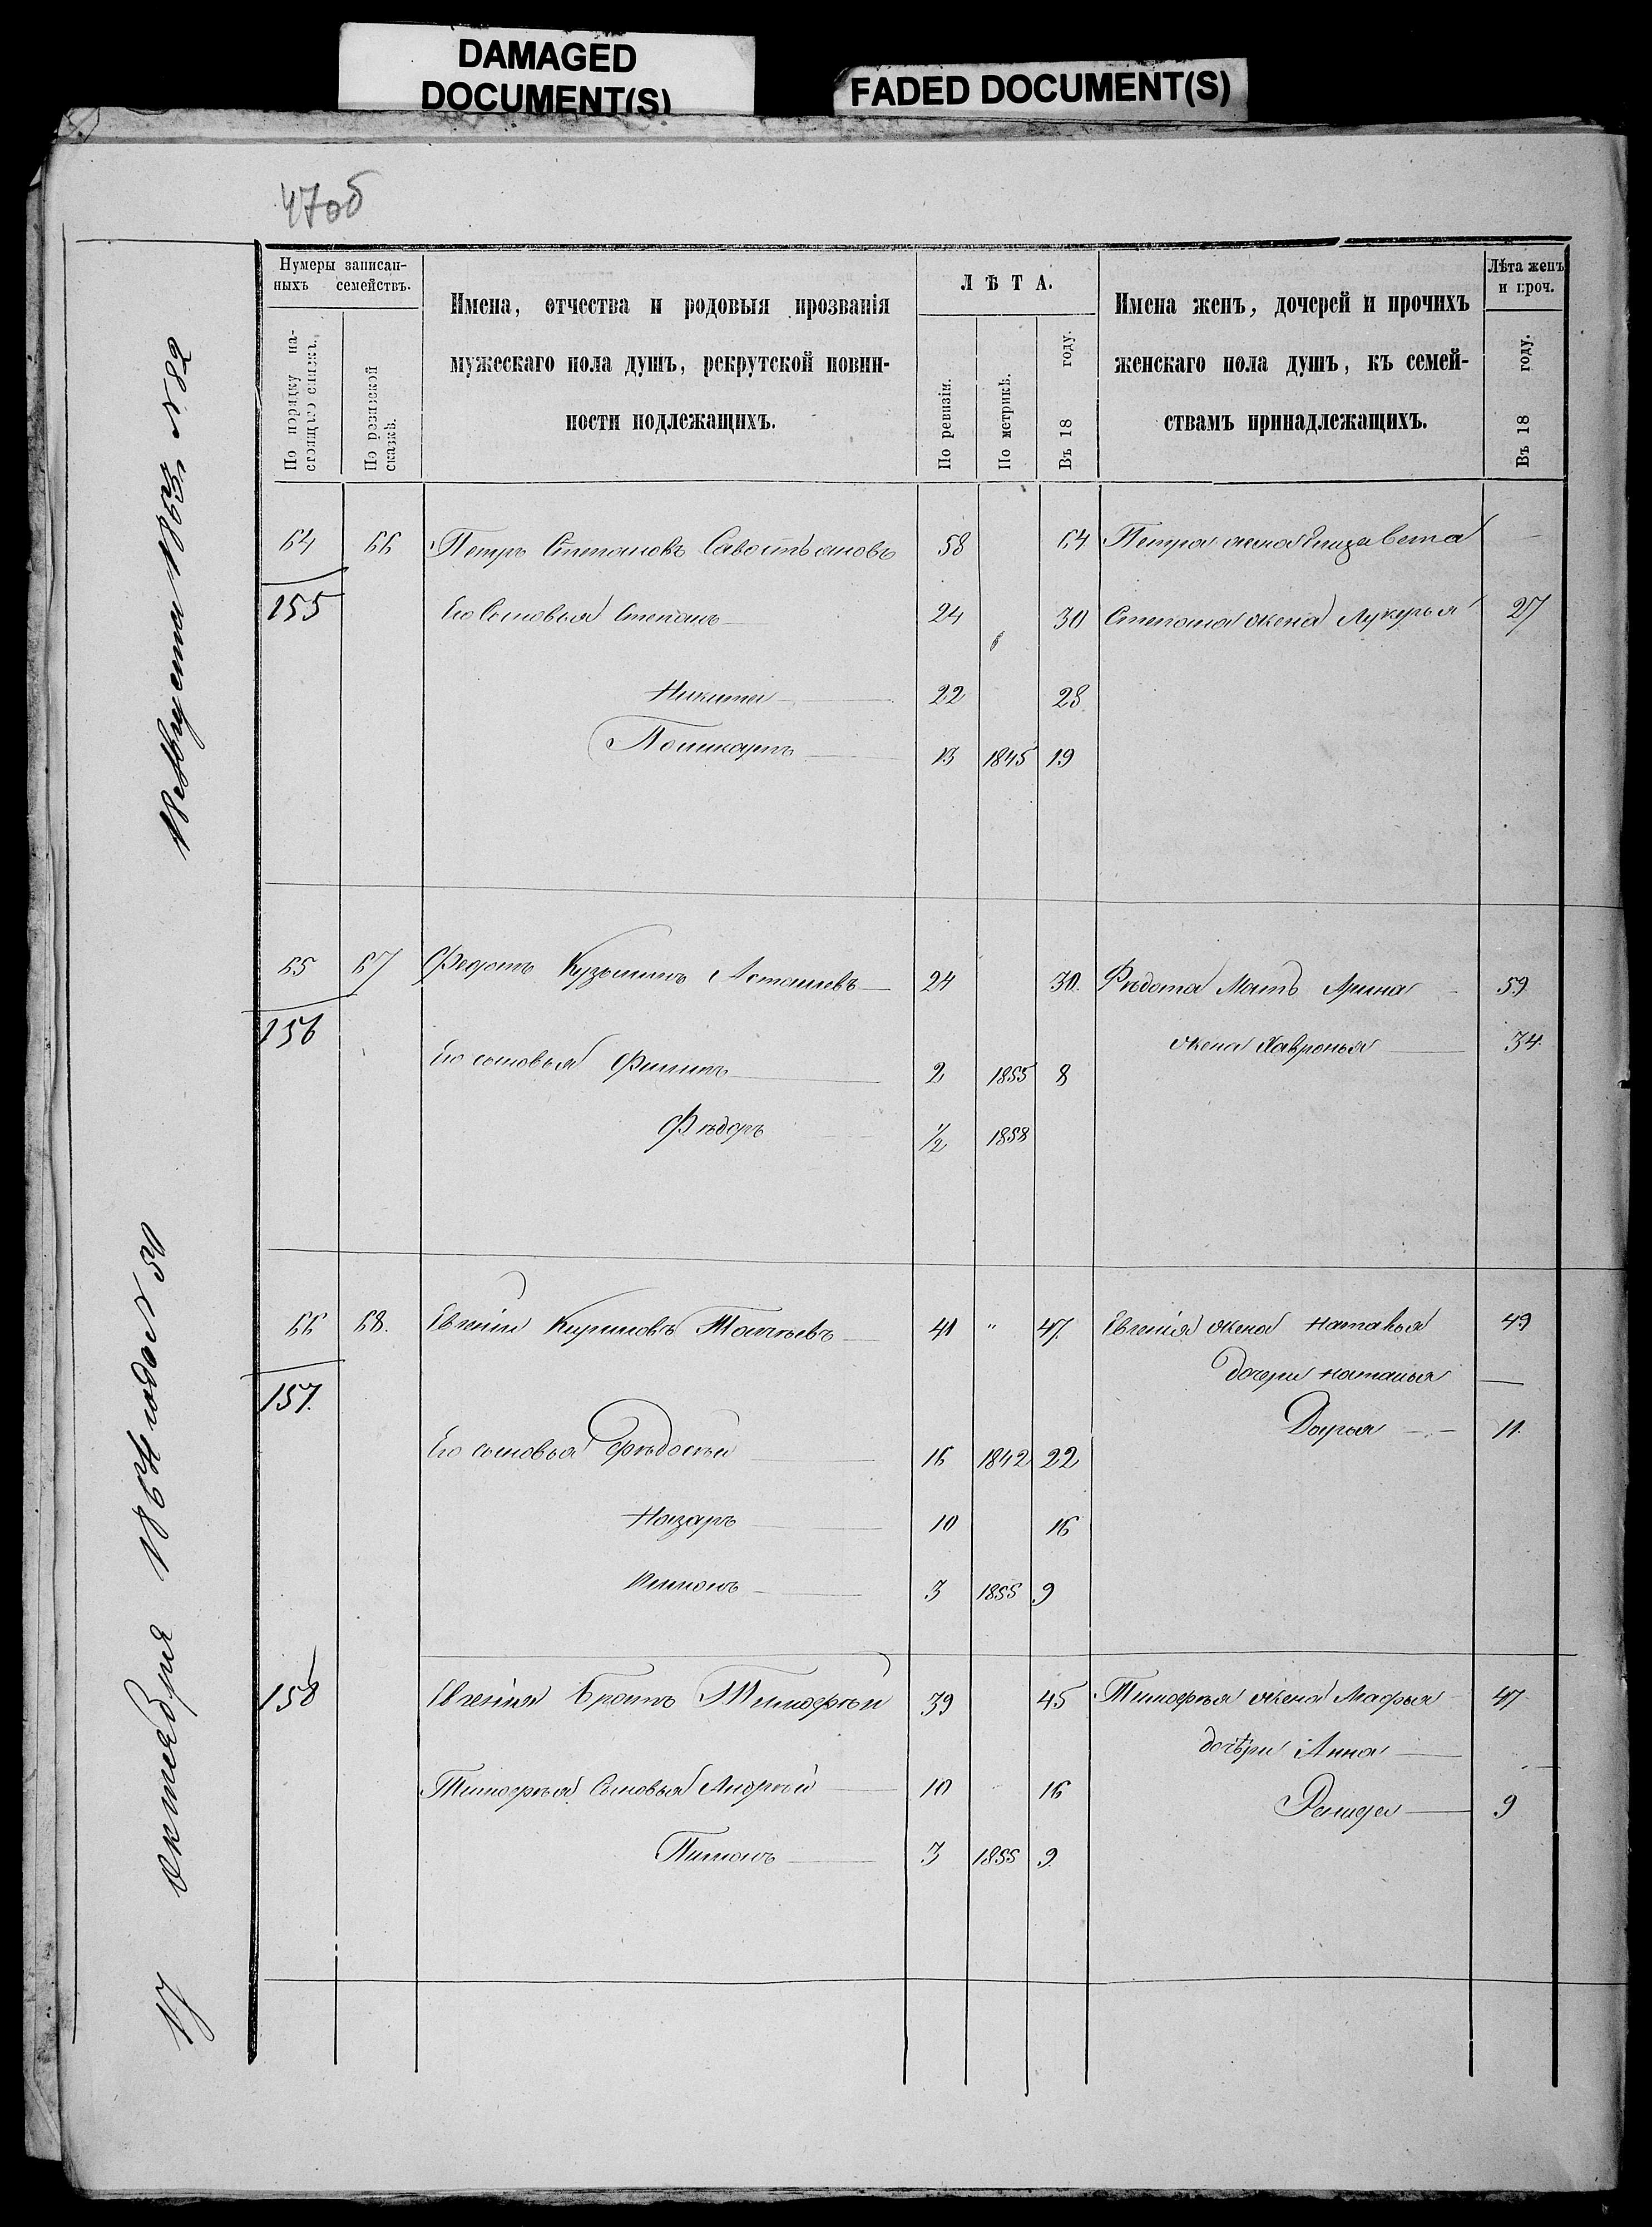 DAMAGED
DOCUMENT(S)
FADED DOCUMENT(S)
47об
Нумеры записан-
ныхъ семействъ.
По порядку на-
стоящаго списка.
По ревизской
сказкѣ.
Имена, отчества и родовыя прозванія
мужескаго пола душъ, рекрутской повин-
ности подлежащихъ.
ЛѢТА.
По ревизіи.
По метрикѣ.
Въ 18 году.
Имена женъ, дочерей и прочихъ
женскаго пола душъ, къ семей-
ствамъ принадлежащихъ.
Лѣта женъ
и проч.
Въ 18 году.
64 66 Петръ Степановъ Савостьяновъ 58 64 Петра жена Елизавета —
155 Его Сыновья Степанъ 24 30 Степана жена Лукерья 27
Никита 22 28
13 1845 19
65 67 Федотъ Кузьминъ Асташевъ 24 30. Федота Мать Арина 59
156 жена Хавронья 34.
Его сыновья Филипъ 2 1855 8
Фѣдоръ 1/2 1858
66 68. Евгеній Кириловъ 41 " 47. Евгенія жена Наталья 49
157. дочери Наталья —
Дарья 11.
Его сыновья Фѣдосѣй 16 1842 22
Назаръ 10 16
3 1855 9
158 Евгенія Братъ Тимофѣй 39 45 Тимофѣя жена Марья 47
дочѣри Анна —
Тимофѣя Сыновья Андрѣй 10 16
9
Пименъ 3 1855 9.
18 Августа 1863 г. № 82
17 октября 1864 года № 50